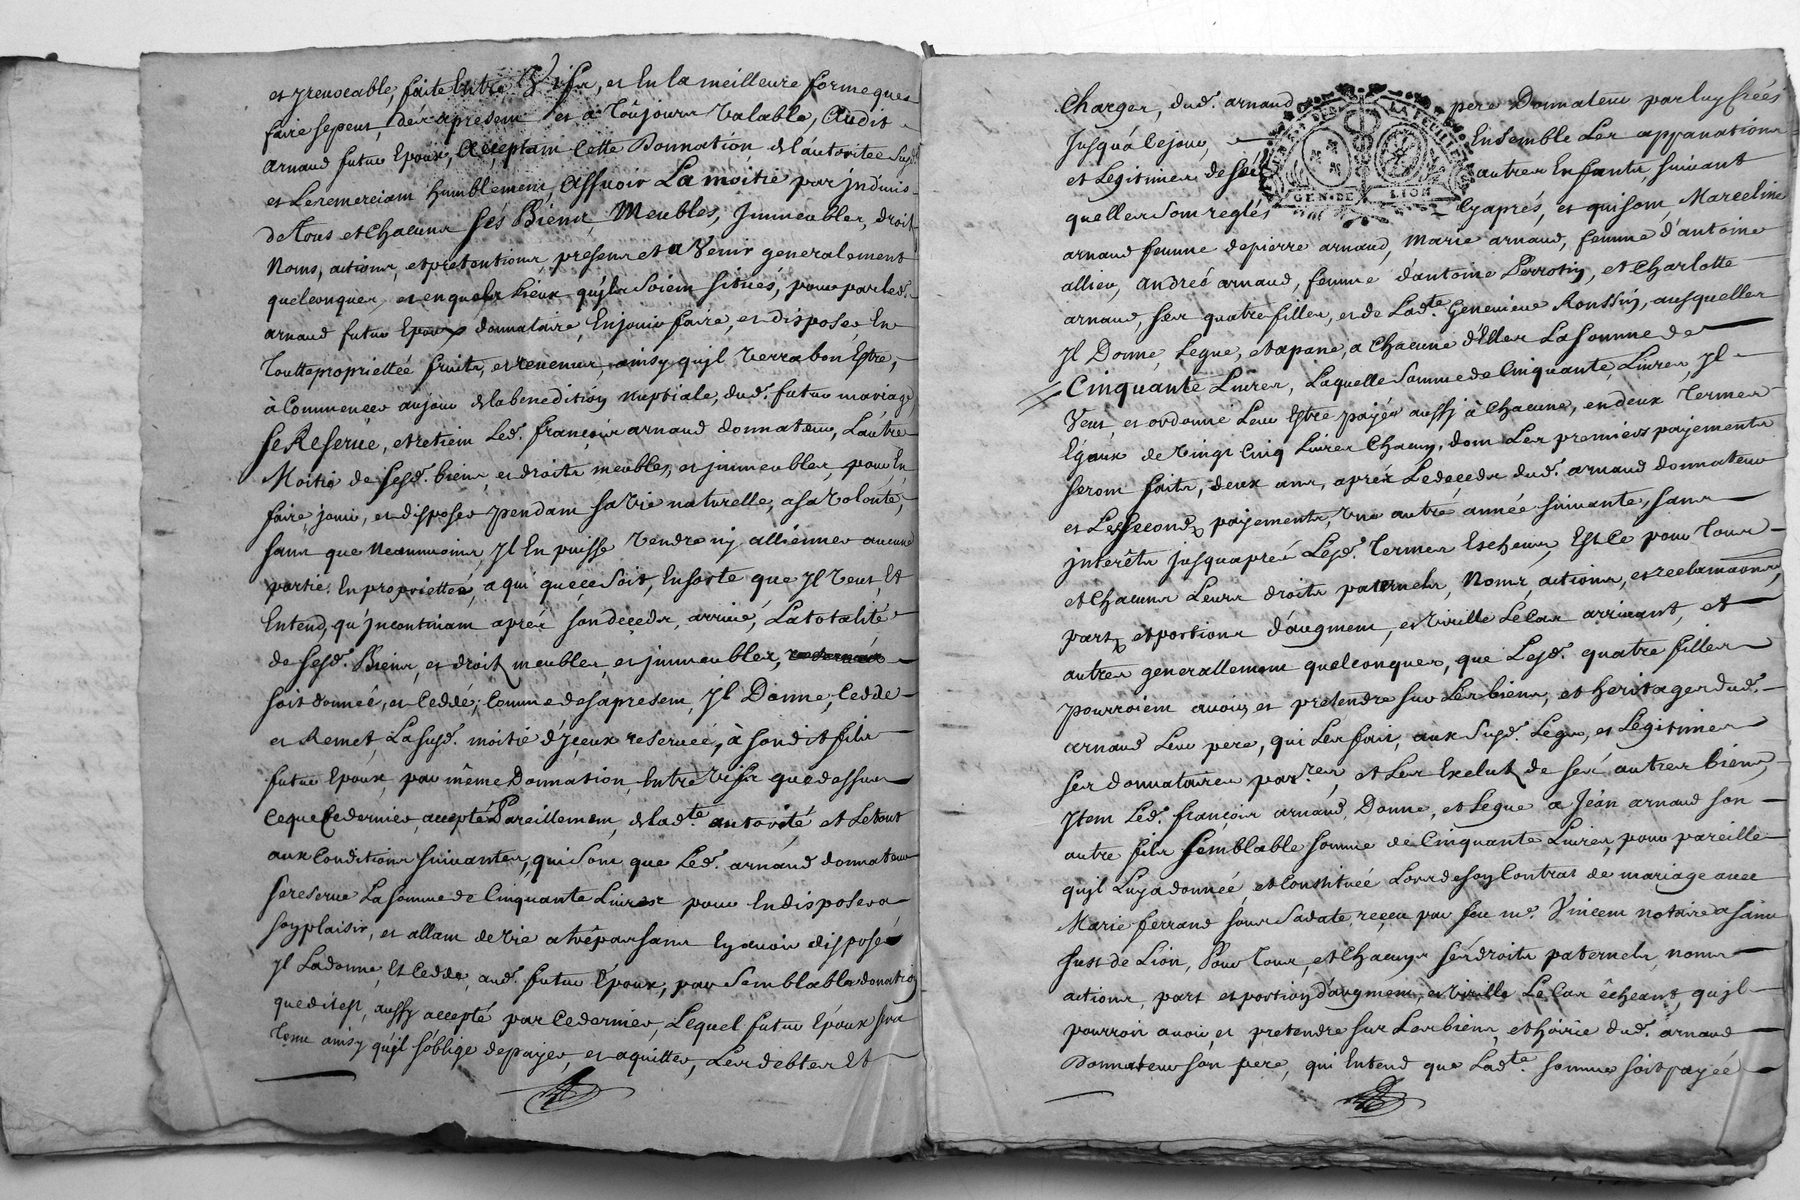 et yrevocable, faite Entre Vifs, et En la meilleure forme que
faire se peut, dés apresent et à Toûjours Valable, Audit
arnaud futur Epoux, acceptant Cette Donnation de l'autoritee Susd.
et Les remerciant humblement, assavoir La moitié par jndivis
de Tous et Chacuns ses Biens, Meubles, Jmmeubles, droit
Noms, actions, et pretentions presens et a Venir generalement
quelconques, et en quels Lieux qu'jls soient situés, pour par led.
arnaud futur Epoux donnataire, En jouir faire, et disposer En
Toutte proprietteé fruits, et revenus, ainsy qu'jl verra bon Estre,
à Commencer au jour de la benediction nuptiale, dud. futur mariage,
se Reserve, et retient Led. françois arnaud donnateur, L'autre
Moitié de sesd. biens, et droits meubles, et jmmeubles, pour En
faire, jouir, et disposer pendant sa vie naturelle, a sa volonté,
sans que Neanmoins, Jl En puisse Vendre ny allienner aucune
partie, En proprietteé, a qui que ce Soit, En sorte que Jl Veut, Et
Entend, qu'jncontinant aprés son deçeds, arrivé, La totalité
de sesd. Biens, et droit meubles, et jmmeubles,
soit donnée, et Ceddé, Comme des apresent, Jl Donne, Cedde
et Remet, La susd. moitié d'jceux reservée, à son dit fils
futur Epoux, par même Donnation, Entre vifs que dessus
Ce que Ce dernier, accepte Pareillement, de lad.te autorité et Le tout
aux Conditions suivantes, qui Sont que Led. arnaud donnateur
se reserve La somme de Cinquante Livres pour En disposer a
son plaisir, et allant de vie a trêpas sans En avoir disposé
Jl La donne, Et Cedde, aud. futur Epoux, par Semblable donation
que dit est, aussy accepté par Ce dernier, Lequel futur Epoux sera
Tenu ainsy qu'jl s'oblige de payer, et aquitter, Les debtes Et
Charges, dud. arnaud pere Donnateur par luy creés
Jusqu'à Ce jour, Ensemble Les appanations
et Legitimes de ses autres Enfants, suivant
quelles Sont reglés Cy aprés, et qui sont Marceline
GEN DE LION
arnaud femme de pierre arnaud, Marie arnaud, femme d'antoine
allier, Andreé arnaud, femme d'antoine Perrotin, et Charlotte
arnaud, ses quatre filles, et de Lad.te Genevieve Ronssin, ausquelles
Jl Donne, Legue, et apane, a Chacune d'Elles La somme de
Cinquante Livres, Laquelle Somme de Cinquante Livres, Jl
Veut et ordonne Leur Estre payée aussj à Chacune, en deux Termes
Egaux de Vingt Cinq Livres Chacun, dont Les premiers payements
seront faits, deux ans, aprés Le deçeds dud. arnaud donnateur
et Les Seconds payements, Une autré année suivante, sans
jnterêts jusqu'aprés Lesd. Termes Escheus, Est Ce pour Tous
et Chacuns Leurs droits paternels, Noms, actions, et reclamaons,
parts et portions d'augment, et Virille Le Cas arrivant, et
autres generallement quelconques, que Lesd. quatre filles
pourroient avoir, et pretendre sur Les biens, et heritages dud.
arnaud Leur pere, qui Les fait, aux Susd. Legs, et Legitimes
ses donnataires par.res, et Les Exclut de ses autres biens,
Jtem Led. françois arnaud, Donne, et Legue a Jean arnaud son
autre fils semblable somme de Cinquante Livres, pour pareille
qu'jl Luy a donnée, et Constituée Lors de son Contrat de mariage avec
Marie ferrand sous Sa date, reçeu par feu m.e Vincent notaire a saint
just de Lion, Pour Tous, et Chacuns ses droits paternels, noms
actions, part et portion d'augment, et Virille Le Cas êcheant, qu'jl
pourroit avoir, et pretendre sur Les biens, et hoirie dud. arnaud
Donnateur son pere, qui Entend que Lad.te somme soit payée